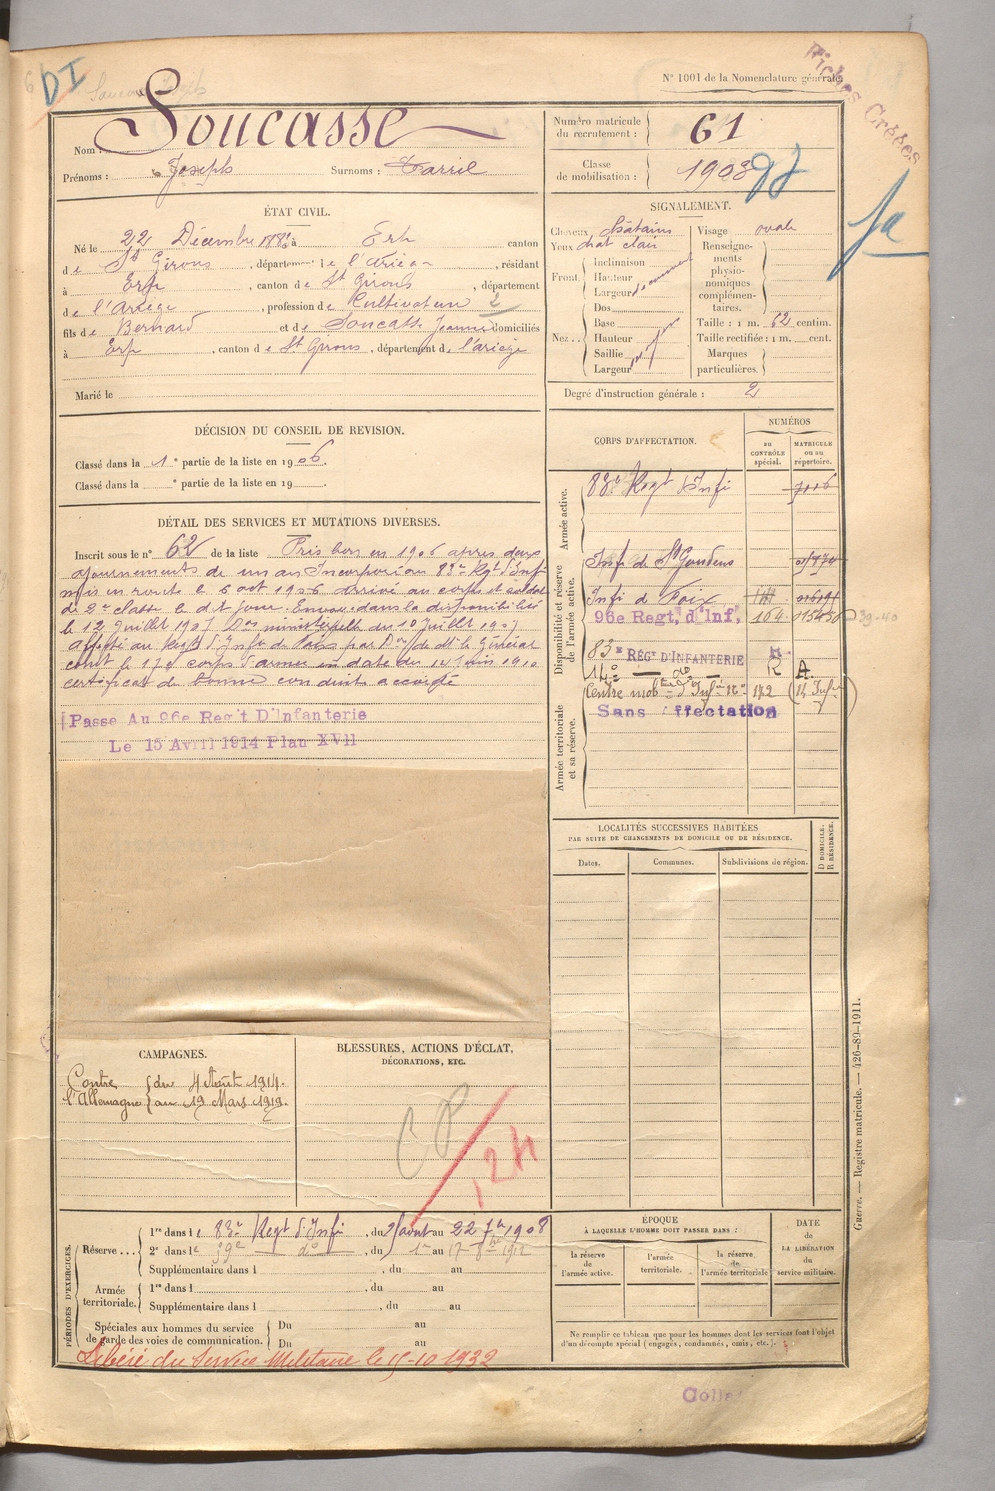 N° 1001 de la Nomenclature générale
DI
Fiches Créées
Nom : Soucasse
Prénoms : Joseph Surnoms : Tarril
Numéro matricule du recrutement : 61
Classe de mobilisation : 1903
ÉTAT CIVIL.
Né le 22 Décembre à Erp canton
de St Girons, département de l'Ariège, résidant
à Erp, canton de St Girons, département
de l'Ariège, profession de Cultivateur 2
fils de Bernard et de Soucasse Jeanne domiciliés
à Erp, canton de St Girons, département de l'ariège
Marié le
SIGNALEMENT.
Cheveux châtains Visage ovale
Yeux chat clair
Front. Inclinaison
Hauteur
Largeur
Nez. Dos
Base
Hauteur
Saillie
Largeur
Renseignements physionomiques complémentaires.
Taille : 1 m. 62 centim.
Taille rectifiée : 1 m. cent.
Marques particulières.
Degré d'instruction générale : 2
DÉCISION DU CONSEIL DE REVISION.
Classé dans la 1e partie de la liste en 1906.
Classé dans la e partie de la liste en 19 .
DÉTAIL DES SERVICES ET MUTATIONS DIVERSES.
Inscrit sous le n° 62 de la liste Pris bon en 1906 après deux
ajournements de un an Incorporé au 83e Rgt d'Inf
mis en route le 6 oct 1906 arrivé au corps et soldat
de 2e classe le dit jour. Envoi dans la disponibilité
le 12 Juillet 1907 Don ministérielle du 10 Juillet 1907
Affecté au Regt d'Inf de Foix par Don de M. le Général
comt le 17e corps d'armée en date du 14 Juin 1910
certificat de bonne conduite accordé
Passe Au 96e Reg't D'Infanterie
Le 15 Avril 1914 Plan XVII
CORPS D'AFFECTATION.
NUMÉROS
au CONTRÔLE spécial.
MATRICULE ou au répertoire.
Armée active.
83e Regt d'Infi
Disponibilité et réserve de l'armée active.
Infi de St Gaudens
Infi de Foix
96e Regt, d'Inf, 104 015450 39-40
83e RÉGt D'INFANTERIE
14e — do — R A
Centre mob d'Infie 172 (14 Infie)
Sans Affectation
Armée territoriale et sa réserve.
LOCALITÉS SUCCESSIVES HABITÉES
PAR SUITE DE CHANGEMENTS DE DOMICILE OU DE RÉSIDENCE.
Dates. Communes. Subdivisions de région. D DOMICILE. R RÉSIDENCE.
CAMPAGNES.
Contre l'Allemagne du 4 Août 1914.
au 19 Mars 1919.
BLESSURES, ACTIONS D'ÉCLAT,
DÉCORATIONS, ETC.
PÉRIODES D'EXERCICES.
Réserve 1re dans le 83e Regt d'Infi, du au 22 7bre 1908
2e dans le do, du au
Supplémentaire dans l , du au
Armée territoriale. 1re dans l , du au
Supplémentaire dans l , du au
Spéciales aux hommes du service de garde des voies de communication. Du au
Du au
Libéré du Service Militaire le 15-10-1932
ÉPOQUE
À LAQUELLE L'HOMME DOIT PASSER DANS :
la réserve de l'armée active.
l'armée territoriale.
la réserve de l'armée territoriale
DATE DE LA LIBÉRATION du service militaire.
Ne remplir ce tableau que pour les hommes dont les services font l'objet
d'un décompte spécial (engagés, condamnés, omis, etc.).
Guerre. — Registre matricule. — 426-89-1911.